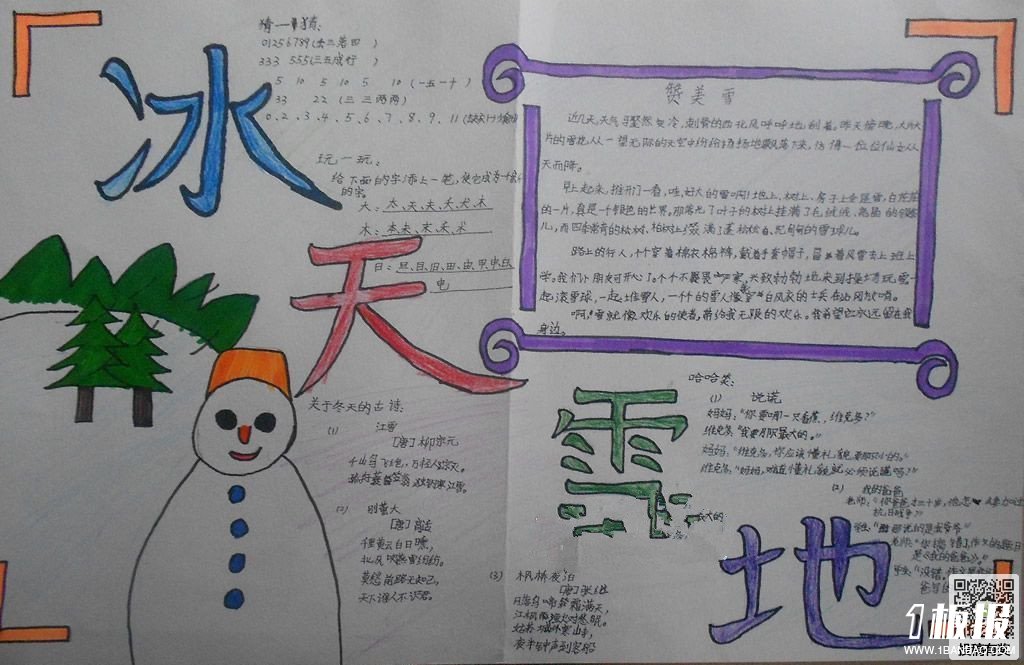 冰
天
雪
地
猜一猜:
01256789(丢三落四 )
333 555(三五成行 )
5 10 5 10 5 10 (一五一十 )
33 22 (三三两两)
0、2、3、4、5、6、7、8、9、11
玩一玩:
给下面的字添上一笔,使它成为
的字。
大: 太、天、夫、夭、犬、木
木: 本、末、禾、术
日: 旦、目、旧、田、由、甲、申、白、
电
关于冬天的古诗:
(1) 江雪
[唐]柳宗元
千山鸟飞绝,万径人踪灭。
孤舟蓑笠翁,独钓寒江雪。
(2) 别董大
[唐]高适
千里黄云白日曛,
北风吹雁雪纷纷。
莫愁前路无知己,
天下谁人不识君。
(3) 枫桥夜泊
[唐]张继
月落乌啼霜满天,
江枫渔火对愁眠。
姑苏城外寒山寺,
夜半钟声到客船
赞美雪
近几天,天气马上骤然变冷,刺骨的西北风呼呼地刮着。昨天傍晚,大片大
片的雪花从一望无际的天空中纷纷扬扬地飘落下来,仿佛一位位仙女从
天而降。
早上起来,推开门一看,哇,好大的雪啊!地上、树上、房子上全是雪,白茫茫
的一片,真是一个银色的世界。那落光了叶子的树上挂满了毛绒绒、亮晶晶的银条
儿,而四季常青的松树、柏树上缀满了蓬松松、沉甸甸的雪球儿。
路上的行人,个个穿着棉衣棉裤,戴着手套帽子,冒着风雪去上班上
学。我们小朋友可开心了。个个不畏严寒,兴致勃勃地来到操场玩雪,一
起滚雪球,一起堆雪人,一个个的雪人像穿白风衣的士兵在站岗放哨。
啊!雪就像欢乐的使者,带给我无限的欢乐。我希望它永远留在我
身边。
哈哈笑:
(1) 说谎
妈妈:“你要哪一只香蕉,维克多?”
维克多:“我要那只最大的。”
妈妈:“维克多,你应该懂礼貌,要那只小的。”
维克多:“妈妈,难道懂礼貌就必须说谎吗?”
最大的
(2) 我的爸爸
老师:“你爸爸才三十岁,他怎
抗日战争?”
老师:“你搞错了,作文的题目
是《我的爸爸》。”
学生:“没错,
1板报
WWW.1BANBAO.COM